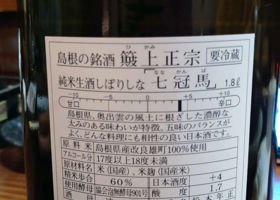 ひ かみ
島根の銘酒 簸上正宗 要冷蔵
なな かん ば
純米生酒しぼりしな 七冠馬 1.8ℓ
-10 -5 ±0 +5 +10
甘口 辛口
島根県、奥出雲の風土に根ざした濃醇な
太みのある味わいが特徴。五味のバランスが
よく、どんな料理にも相性の良い日本酒です。
原料米 島根県産改良雄町100%使用
アルコール分 17度以上18度未満
原材料 米(国産)、米麹(国産米)
精米歩合 60% 日本酒度 +4
使用酵母 協会泡無酵母901号 酸度 1.7